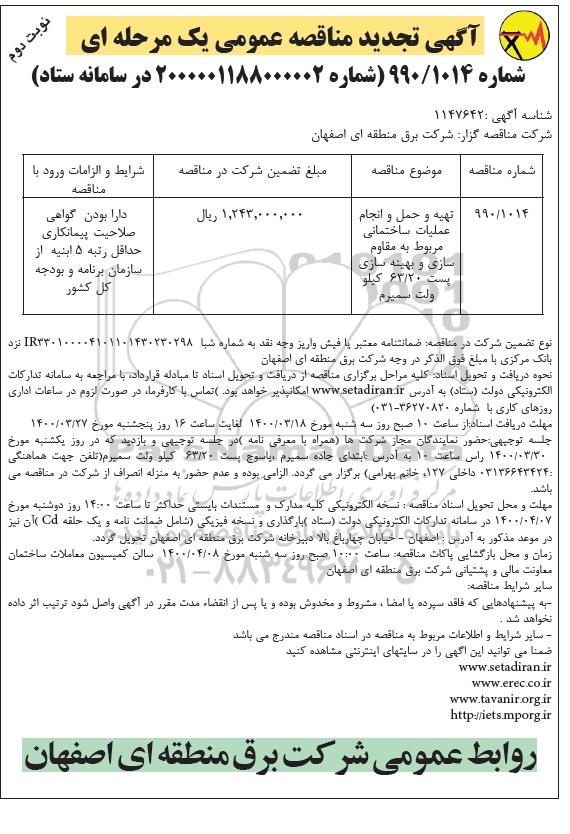 نوبت دوم
آگهی تجدید مناقصه عمومی یک مرحله ای
شماره ۹۹۰/۱۰۱۴ (شماره ۲۰۰۰۰۰۱۱۸۸۰۰۰۰۰۲ در سامانه ستاد)
شناسه آگهی :۱۱۴۷۶۴۲
شرکت مناقصه گزار: شرکت برق منطقه ای اصفهان
شماره مناقصه
موضوع مناقصه
مبلغ تضمین شرکت در مناقصه
شرایط و الزامات ورود با
مناقصه
۹۹۰/۱۰۱۴
تهیه و حمل و انجام
عملیات ساختمانی
مربوط به مقاوم
سازی و بهینه سازی
پست ۶۳/۲۰ کیلو
ولت سمیرم
۱,۲۴۳,۰۰۰,۰۰۰ ریال
دارا بودن گواهی
صلاحیت پیمانکاری
حداقل رتبه ۵ ابنیه از
سازمان برنامه و بودجه
کل کشور
نوع تضمین شرکت در مناقصه: ضمانتنامه معتبر یا فیش واریز وجه نقد به شماره شبا IR۳۳۰۱۰۰۰۰۴۱۰۱۱۰۱۴۳۰۲۳۰۲۹۸ نزد
بانک مرکزی با مبلغ فوق الذکر در وجه شرکت برق منطقه ای اصفهان
نحوه دریافت و تحویل اسناد: کلیه مراحل برگزاری مناقصه از دریافت و تحویل اسناد تا مبادله قرارداد، با مراجعه به سامانه تدارکات
الکترونیکی دولت (ستاد) به آدرس www.setadiran.ir امکانپذیر خواهد بود. )تماس با کارفرما، در صورت لزوم در ساعات اداری
روزهای کاری با شماره ۳۶۲۷۰۸۲۰-۰۳۱)
مهلت دریافت اسناد:از ساعت ۱۰ صبح روز سه شنبه مورخ ۱۴۰۰/۰۳/۱۸ لغایت ساعت ۱۶ روز پنجشنبه مورخ ۱۴۰۰/۰۳/۲۷
جلسه توجیهی:حضور نمایندگان مجاز شرکت ها (همراه با معرفی نامه )در جلسه توجیهی و بازدید که در روز یکشنبه مورخ
۱۴۰۰/۰۳/۳۰ راس ساعت ۱۰ به آدرس :ابتدای جاده سمیرم ،یاسوج پست ۶۳/۲۰ کیلو ولت سمیرم(تلفن جهت هماهنگی
:۰۳۱۳۶۶۴۳۴۲۴ داخلی ۱۲۷، خانم بهرامی) برگزار می گردد. الزامی بوده و عدم حضور به منزله انصراف از شرکت در مناقصه می
باشد.
مهلت و محل تحویل اسناد مناقصه : نسخه الکترونیکی کلیه مدارک و مستندات بایستی حداکثر تا ساعت ۱۴:۰۰ روز دوشنبه مورخ
۱۴۰۰/۰۴/۰۷ در سامانه تدارکات الکترونیکی دولت (ستاد )بارگذاری و نسخه فیزیکی (شامل ضمانت نامه و یک حلقه Cd )آن نیز
در موعد مذکور به آدرس : اصفهان - خیابان چهارباغ بالا دبیرخانه شرکت برق منطقه ای اصفهان تحویل گردد.
زمان و محل بازگشایی پاکات مناقصه: ساعت ۱۰:۰۰ صبح روز سه شنبه مورخ ۱۴۰۰/۰۴/۰۸ سالن کمیسیون معاملات ساختمان
معاونت مالی و پشتیانی شرکت برق منطقه ای اصفهان
سایر شرایط مناقصه:
-به پیشنهادهایی که فاقد سپرده یا امضا ، مشروط و مخدوش بوده و یا پس از انقضاء مدت مقرر در آگهی واصل شود ترتیب اثر داده
نخواهد شد .
- سایر شرایط و اطلاعات مربوط به مناقصه در اسناد مناقصه مندرج می باشد
ضمنا می توانید این اگهی را در سایتهای اینترنتی مشاهده کنید
www.setadiran.ir
www.erec.co.ir
www.tavanir.org.ir
http://iets.mporg.ir
روابط عمومی شرکت برق منطقه ای اصفهان